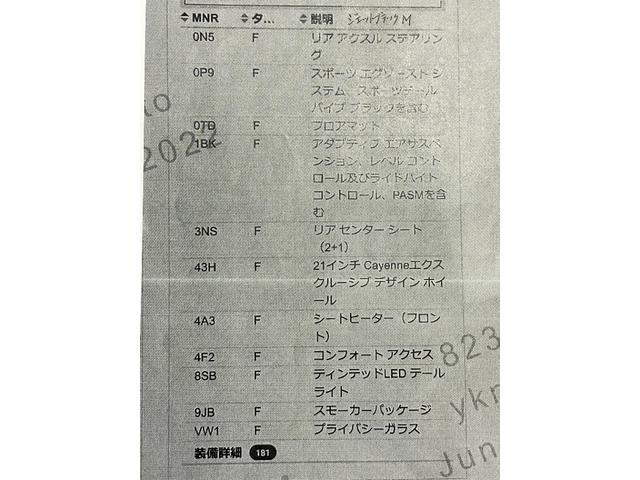 MNR タ... 説明 ジェットブラックM
0N5 F リア アクスル ステアリン
グ
0P9 F スポーツ エグゾースト シ
ステム、スポーツテール
パイプ ブラックを含む
0TD F フロアマット
1BK F アダプティブ エアサスペ
ンション、レベル コント
ロール及びライドハイト
コントロール、PASMを含
む
3NS F リア センター シート
（2+1）
43H F 21インチ Cayenneエクス
クルーシブ デザイン ホイ
ール
4A3 F シートヒーター（フロン
ト）
4F2 F コンフォート アクセス
8SB F ティンテッドLED テール
ライト
9JB F スモーカーパッケージ
VW1 F プライバシーガラス
装備詳細 181
2022
823
Jun